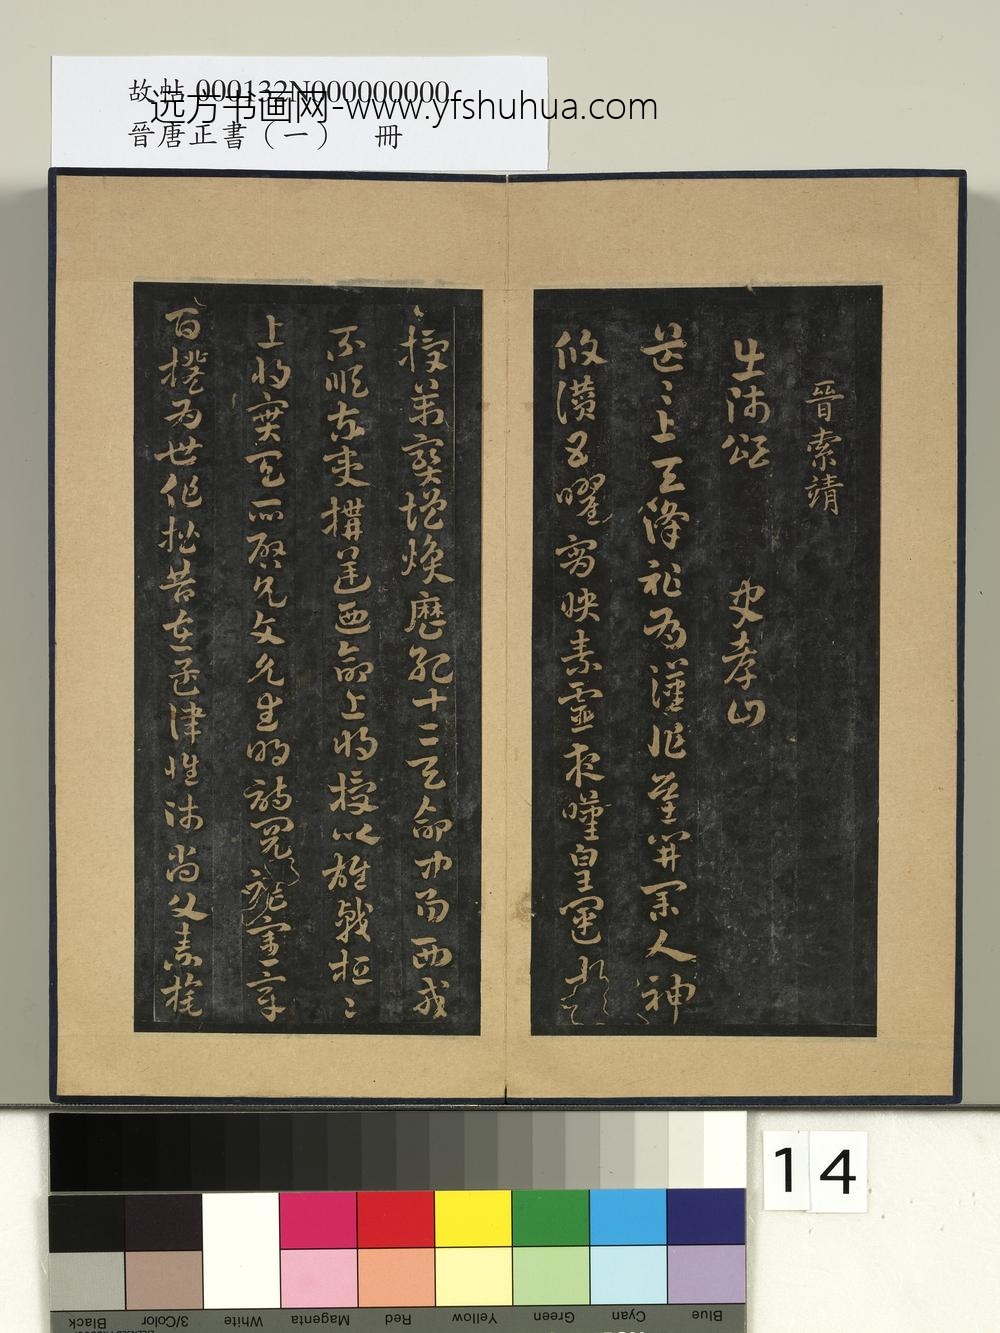 故帖 000132N000000000
远方书画网-www.yfshuhua.com
晉唐正書（一） 冊
晉索靖
出師頌 史孝山
茫〻上天降祚為漢作基開業人神
攸讚五曜宵映素靈夜歎皇運來
授萬寶增煥歷紀十二天命中易西戎
不順東夷構逆迺命上將授以雄戟桓〻
上將實天所啟允文允武明詩閱禮憲章
百揆為世作楷昔在孟津惟師尚父素旄
14
Black
3/Color
White
Magenta
Red
Yellow
Green
Cyan
Blue